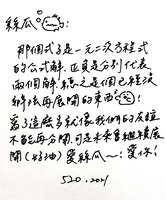 絲瓜:
那個式子是一元二次方程式
的公式解,正負是分別代表
兩個解,總之是個已經沒
辦法再展開的東西
寫了這麼多就像我們的友誼
不能再分開,可是未來會繼續展
開(好油)愛絲瓜~!愛你!
520.2021